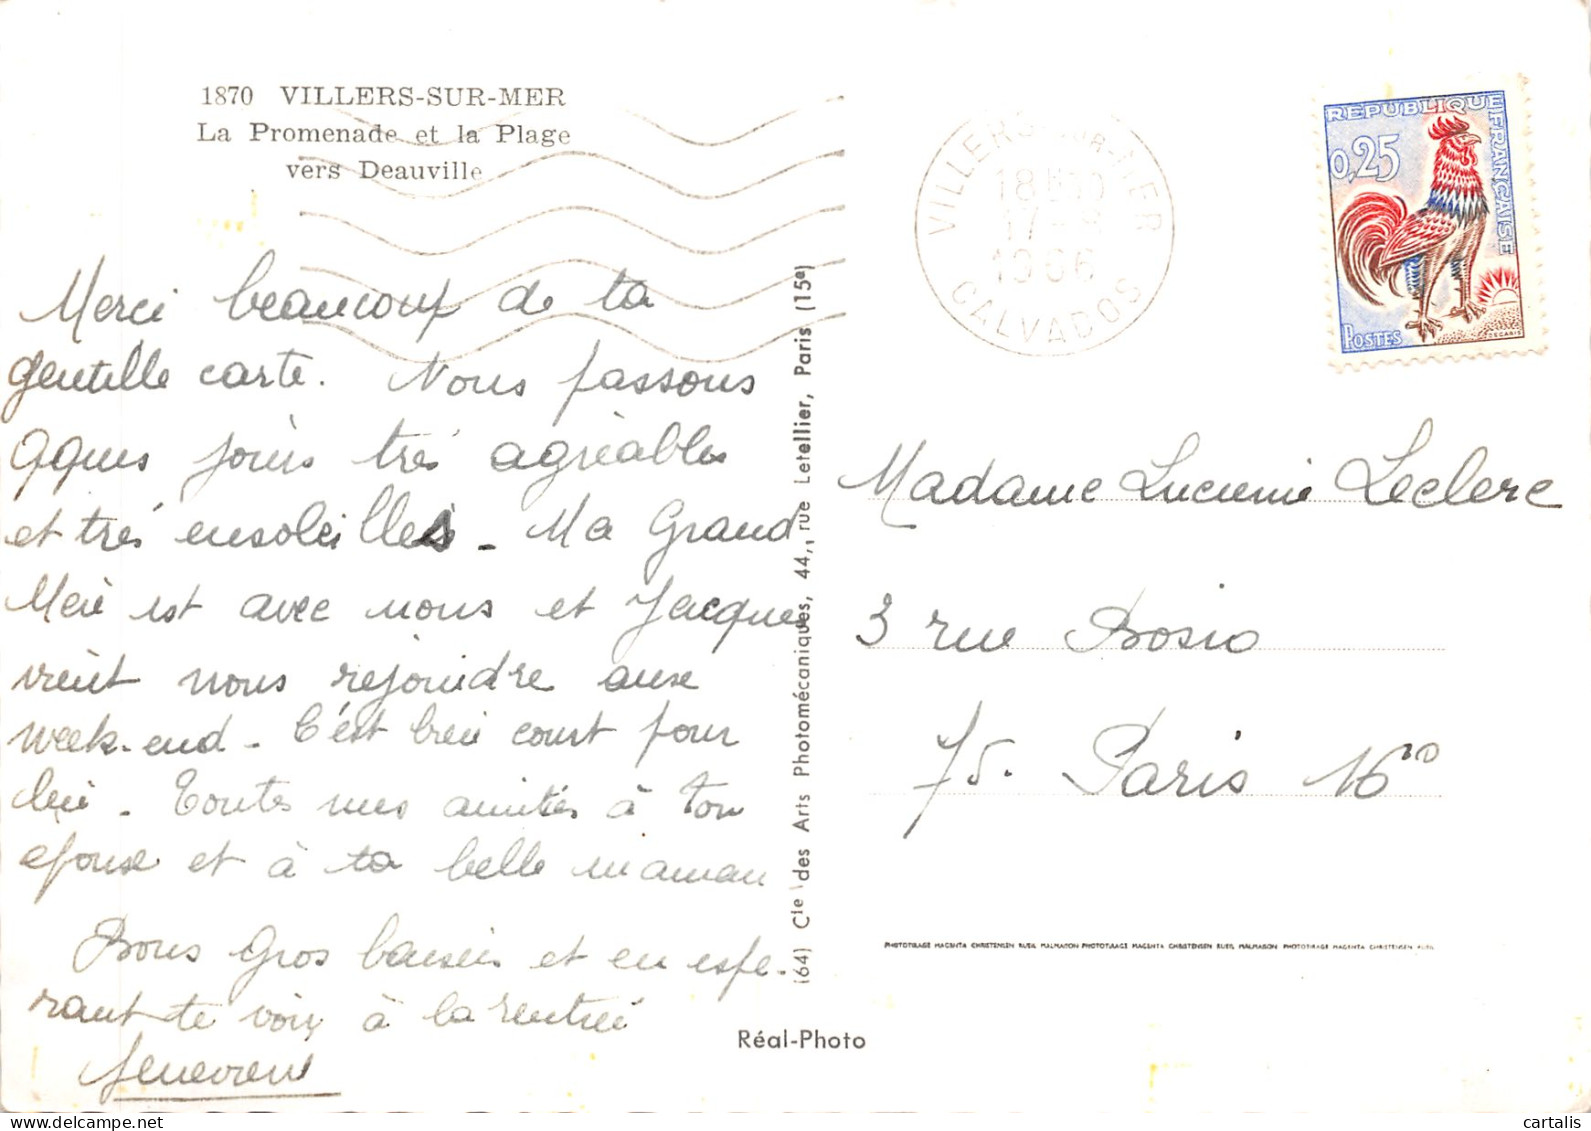 1870 VILLERS-SUR-MER
La Promenade et la Plage
vers Deauville
Merci beaucoup de ta
gentille carte. Nous passons
qques jours très agréables
et très ensoleillés - Ma Grand
Mère est avec nous et Jacques
vient nous rejoindre
week-end - C'est bien court pour
lui - Toutes mes amitiés à ton
épouse et à ta belle maman
Bons Gros baisers et en espé-
rant te voir à la rentrée
Genevieve
(64) Cie des Arts Photomécaniques, 44, rue Letellier, Paris (15e)
Réal-Photo
VILLERS-SUR-MER
18H
17
1966
CALVADOS
REPUBLIQUE FRANÇAISE
0,25
POSTES
DECARIS
Madame Lucienne Leclerc
3 rue Bosio
75. Paris 16e
PHOTOTIRAGE MAGENTA CHRISTENSEN RUEIL MALMAISON PHOTOTIRAGE MAGENTA CHRISTENSEN RUEIL MALMAISON PHOTOTIRAGE MAGENTA CHRISTENSEN RUEIL
cartalis